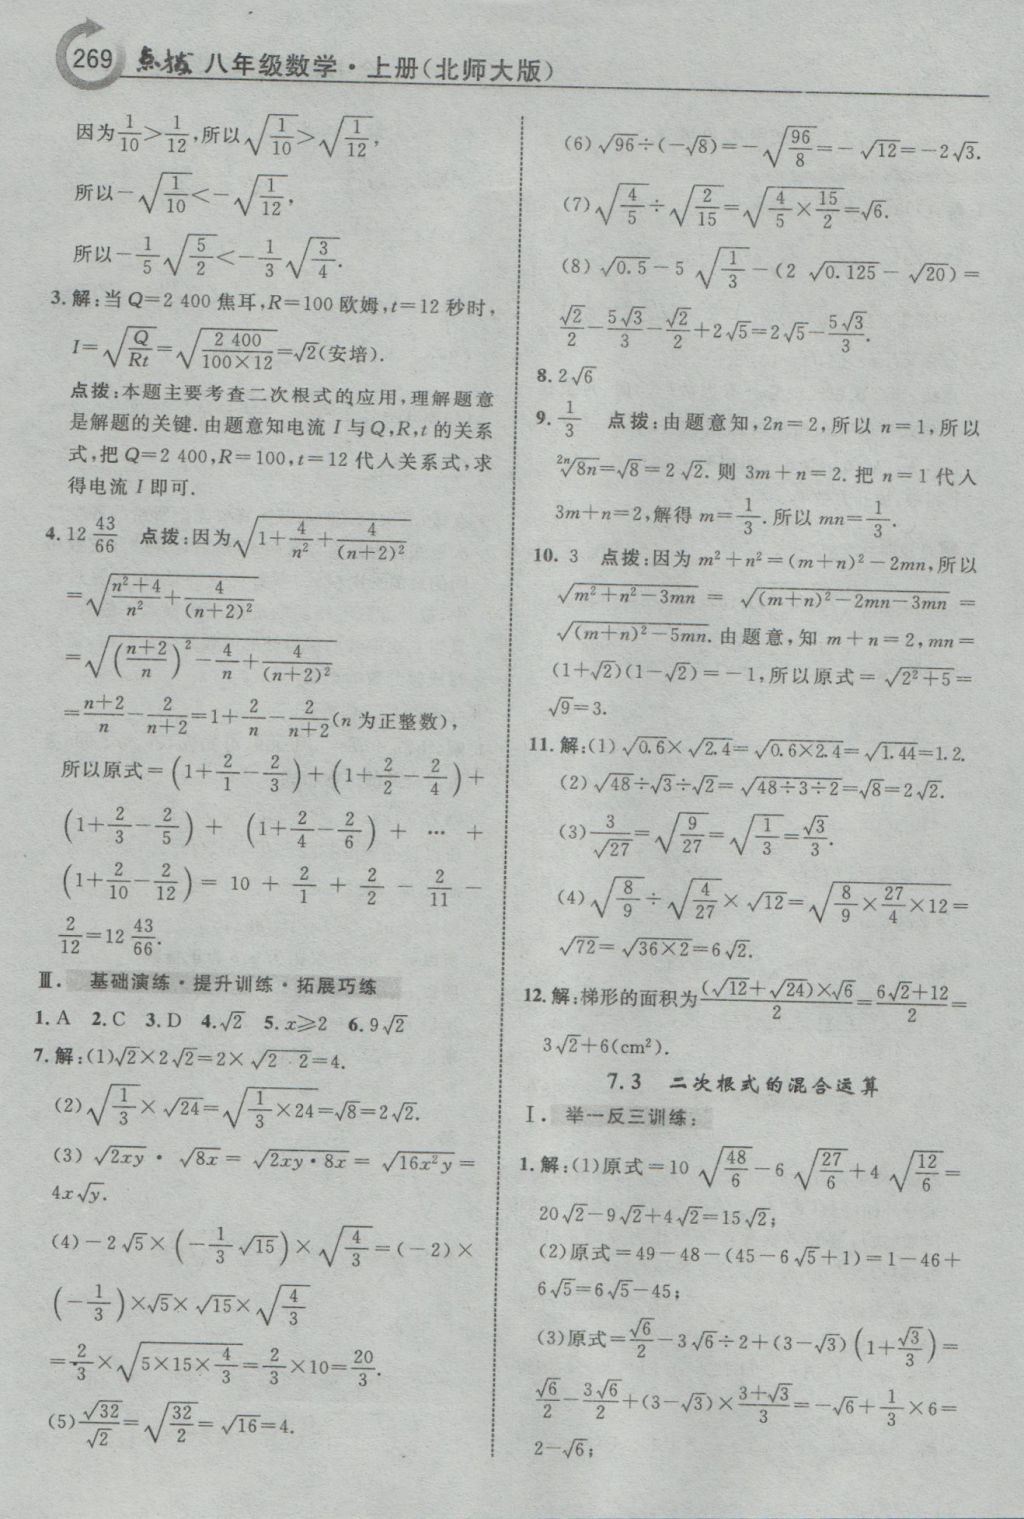 269 点拨 八年级数学·上册(北师大版)
因为1/10>1/12,所以√(1/10)>√(1/12),
所以-√(1/10)<-√(1/12),
所以-1/5√(5/2)<-1/3√(3/4).
3.解:当Q=2 400焦耳,R=100欧姆,t=12秒时,
I=√(Q/Rt)=√(2 400/(100×12))=√2(安培).
点拨:本题主要考查二次根式的应用,理解题意
是解题的关键.由题意知电流I与Q,R,t的关系
式,把Q=2 400,R=100,t=12代入关系式,求
得电流I即可.
4.12 43/66 点拨:因为√(1+4/n²+4/(n+2)²)
=√((n²+4)/n²+4/(n+2)²)
=√(((n+2)/n)²-4/n+4/(n+2)²)
=(n+2)/n-2/(n+2)=1+2/n-2/(n+2)(n为正整数),
所以原式=(1+2/1-2/3)+(1+2/2-2/4)+
(1+2/3-2/5)+(1+2/4-2/6)+…+
(1+2/10-2/12)=10+2/1+2/2-2/11-
2/12=12 43/66.
Ⅲ. 基础演练·提升训练·拓展巧练
1.A 2.C 3.D 4.√2 5.x≥2 6.9√2
7.解:(1)√2×2√2=2×√(2·2)=4.
(2)√(1/3)×√24=√(1/3×24)=√8=2√2.
(3)√(2xy)·√(8x)=√(2xy·8x)=√(16x²y)=
4x√y.
(4)-2√5×(-1/3√15)×√(4/3)=(-2)×
(-1/3)×√5×√15×√(4/3)
=2/3×√(5×15×4/3)=2/3×10=20/3.
(5)√32/√2=√(32/2)=√16=4.
(6)√96÷(-√8)=-√(96/8)=-√12=-2√3.
(7)√(4/5)÷√(2/15)=√(4/5×15/2)=√6.
(8)√0.5-5√(1/3)-(2√0.125-√20)=
√2/2-5√3/3-√2/2+2√5=2√5-5√3/3.
8.2√6
9.1/3 点拨:由题意知,2n=2,所以n=1,所以
²ⁿ√(8n)=√8=2√2.则3m+n=2.把n=1代入
3m+n=2,解得m=1/3.所以mn=1/3.
10.3 点拨:因为m²+n²=(m+n)²-2mn,所以
√(m²+n²-3mn)=√((m+n)²-2mn-3mn)=
√((m+n)²-5mn).由题意,知m+n=2,mn=
(1+√2)(1-√2)=-1,所以原式=√(2²+5)=
√9=3.
11.解:(1)√0.6×√2.4=√(0.6×2.4)=√1.44=1.2.
(2)√48÷√3÷√2=√(48÷3÷2)=√8=2√2.
(3)3/√27=√(9/27)=√(1/3)=√3/3.
(4)√(8/9)÷√(4/27)×√12=√(8/9×27/4×12)=
√72=√(36×2)=6√2.
12.解:梯形的面积为(√12+√24)×√6/2=(6√2+12)/2=
3√2+6(cm²).
7.3 二次根式的混合运算
Ⅰ. 举一反三训练:
1.解:(1)原式=10√(48/6)-6√(27/6)+4√(12/6)=
20√2-9√2+4√2=15√2;
(2)原式=49-48-(45-6√5+1)=1-46+
6√5=6√5-45;
(3)原式=√6/2-3√6÷2+(3-√3)(1+√3/3)=
√6/2-3√6/2+(3-√3)×(3+√3)/3=-√6+1/3×6=
2-√6;